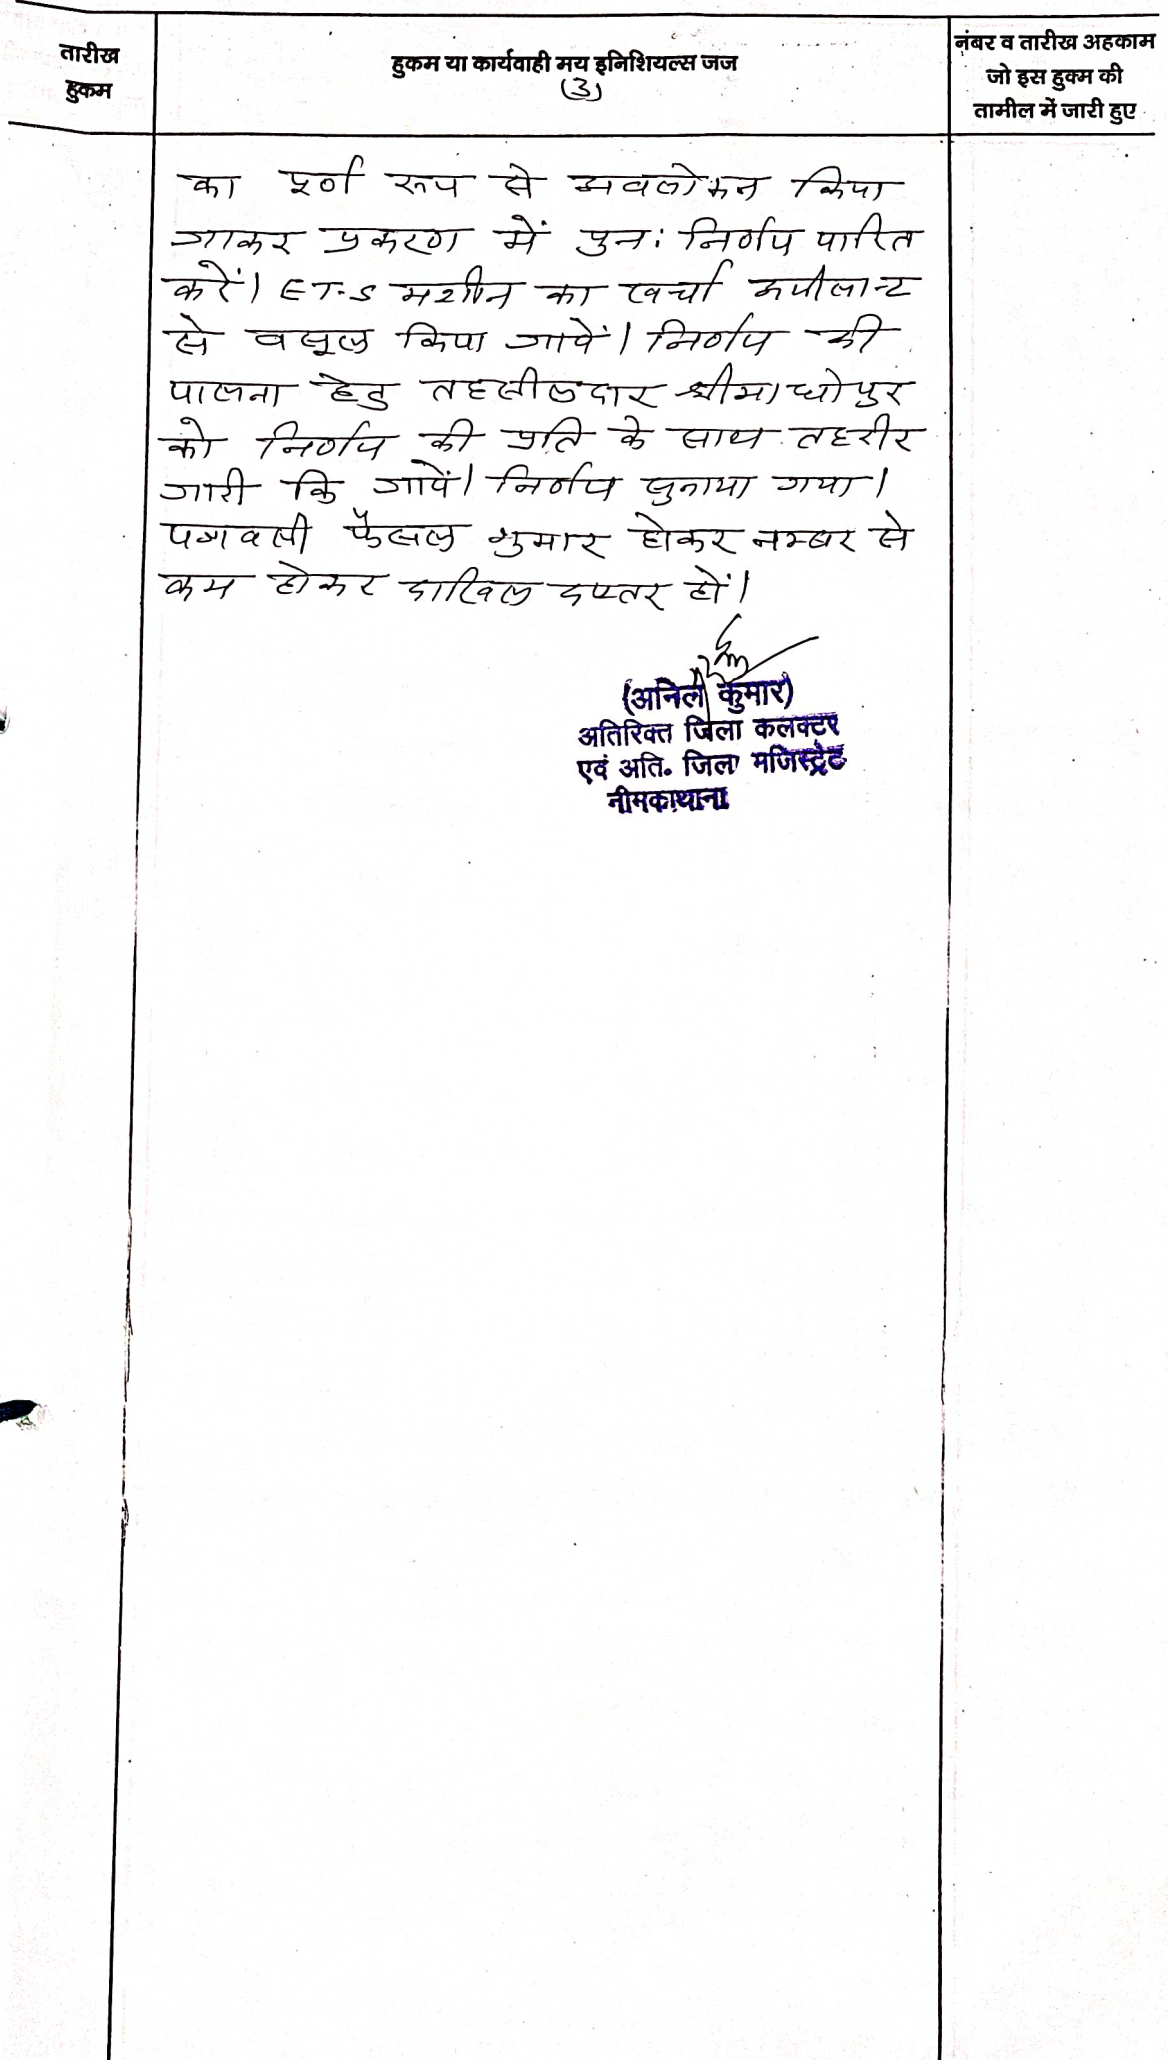 तारीख
हुकम
हुकम या कार्यवाही मय इनिशियल्स जज
(3)
नंबर व तारीख अहकाम
जो इस हुक्म की
तामील में जारी हुए
का पूर्ण रूप से अवलोकन किया
जाकर प्रकरण में पुनः निर्णय पारित
करें। E.T.S मशीन का खर्चा अपीलान्ट
से वसूल किया जावें। निर्णय की
पालना हेतु तहसीलदार श्रीमाधोपुर
को निर्णय की प्रति के साथ तहरीर
जारी कि जावें। निर्णय सुनाया गया।
पत्रावली फैसल शुमार होकर नम्बर से
कम होकर दाखिल दफ्तर हों।
(अनिल कुमार)
अतिरिक्त जिला कलक्टर
एवं अति. जिला मजिस्ट्रेट
नीमकाथाना